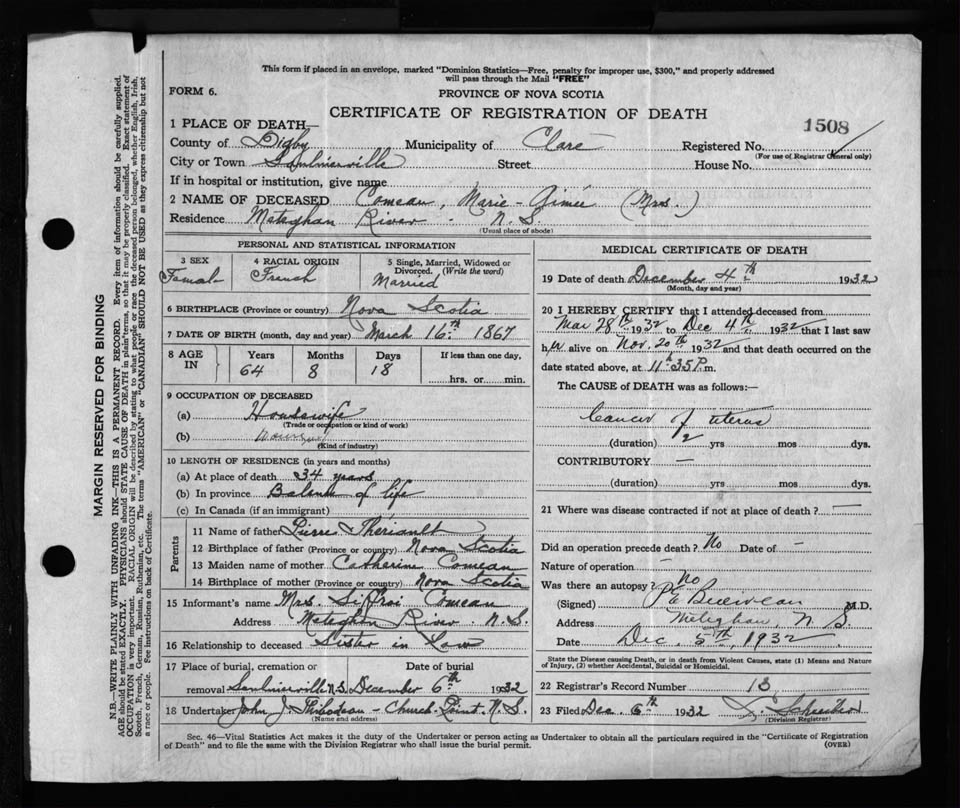 This form if placed in an envelope, marked "Dominion Statistics—Free, penalty for improper use, $300," and properly addressed
will pass through the Mail "FREE"
FORM 6.
PROVINCE OF NOVA SCOTIA
CERTIFICATE OF REGISTRATION OF DEATH
1508
1 PLACE OF DEATH—
County of Digby Municipality of Clare Registered No.
(For use of Registrar General only)
City or Town Saulnierville Street House No.
If in hospital or institution, give name
2 NAME OF DECEASED Comeau, Marie-Aimée (Mrs.)
Residence Meteghan River - N.S.
(Usual place of abode)
PERSONAL AND STATISTICAL INFORMATION
3 SEX 4 RACIAL ORIGIN 5 Single, Married, Widowed or
Divorced. (Write the word)
Female French Married
6 BIRTHPLACE (Province or country) Nova Scotia
7 DATE OF BIRTH (month, day and year) March 16th 1867
8 AGE IN Years Months Days If less than one day,
64 8 18 hrs. or min.
9 OCCUPATION OF DECEASED
(a) Housewife
(Trade or occupation or kind of work)
(b)
(Kind of industry)
10 LENGTH OF RESIDENCE (in years and months)
(a) At place of death 34 years
(b) In province Balance of life
(c) In Canada (if an immigrant)
Parents
11 Name of father Pierre Thériault
12 Birthplace of father (Province or country) Nova Scotia
13 Maiden name of mother Catherine Comeau
14 Birthplace of mother (Province or country) Nova Scotia
15 Informant's name Mrs. Comeau
Address Meteghan River - N.S.
16 Relationship to deceased Sister in Law
17 Place of burial, cremation or Date of burial
removal Saulnierville N.S. December 6th 1932
18 Undertaker John J. Thibodeau - Church Point. N.S.
(Name and address)
MEDICAL CERTIFICATE OF DEATH
19 Date of death December 4th 1932
(Month, day and year)
20 I HEREBY CERTIFY that I attended deceased from
Mar 28th 1932 to Dec 4th 1932 that I last saw
her alive on Nov. 20th 1932 and that death occurred on the
date stated above, at 11h 35 P.m.
The CAUSE of DEATH was as follows:—
Cancer of uterus
(duration) 2 yrs mos dys.
CONTRIBUTORY —
(duration) yrs mos dys.
21 Where was disease contracted if not at place of death? —
Did an operation precede death? No Date of —
Nature of operation —
Was there an autopsy? No
(Signed) P.E. M.D.
Address Meteghan, N S
Date Dec. 5th, 1932
State the Disease causing Death, or in death from Violent Causes, state (1) Means and Nature
of Injury, (2) whether Accidental, Suicidal or Homicidal.
22 Registrar's Record Number 13
23 Filed Dec. 6th 1932
(Division Registrar)
Sec. 46—Vital Statistics Act makes it the duty of the Undertaker or person acting as Undertaker to obtain all the particulars required in the "Certificate of Registration
of Death" and to file the same with the Division Registrar who shall issue the burial permit. (OVER)
MARGIN RESERVED FOR BINDING
N.B.—WRITE PLAINLY WITH UNFADING INK—THIS IS A PERMANENT RECORD. Every item of information should be carefully supplied.
AGE should be stated EXACTLY. PHYSICIANS should STATE CAUSE OF DEATH in plain terms, so that it may be properly classified. Exact statement of
OCCUPATION is very important. RACIAL ORIGIN will be described by stating to what people or race the deceased person belonged, whether English, Irish,
Scotch, French, German, Russian, Ruthenian, etc. The terms "AMERICAN" or "CANADIAN" SHOULD NOT BE USED as they express citizenship but not
a race or people. See instructions on back of Certificate.